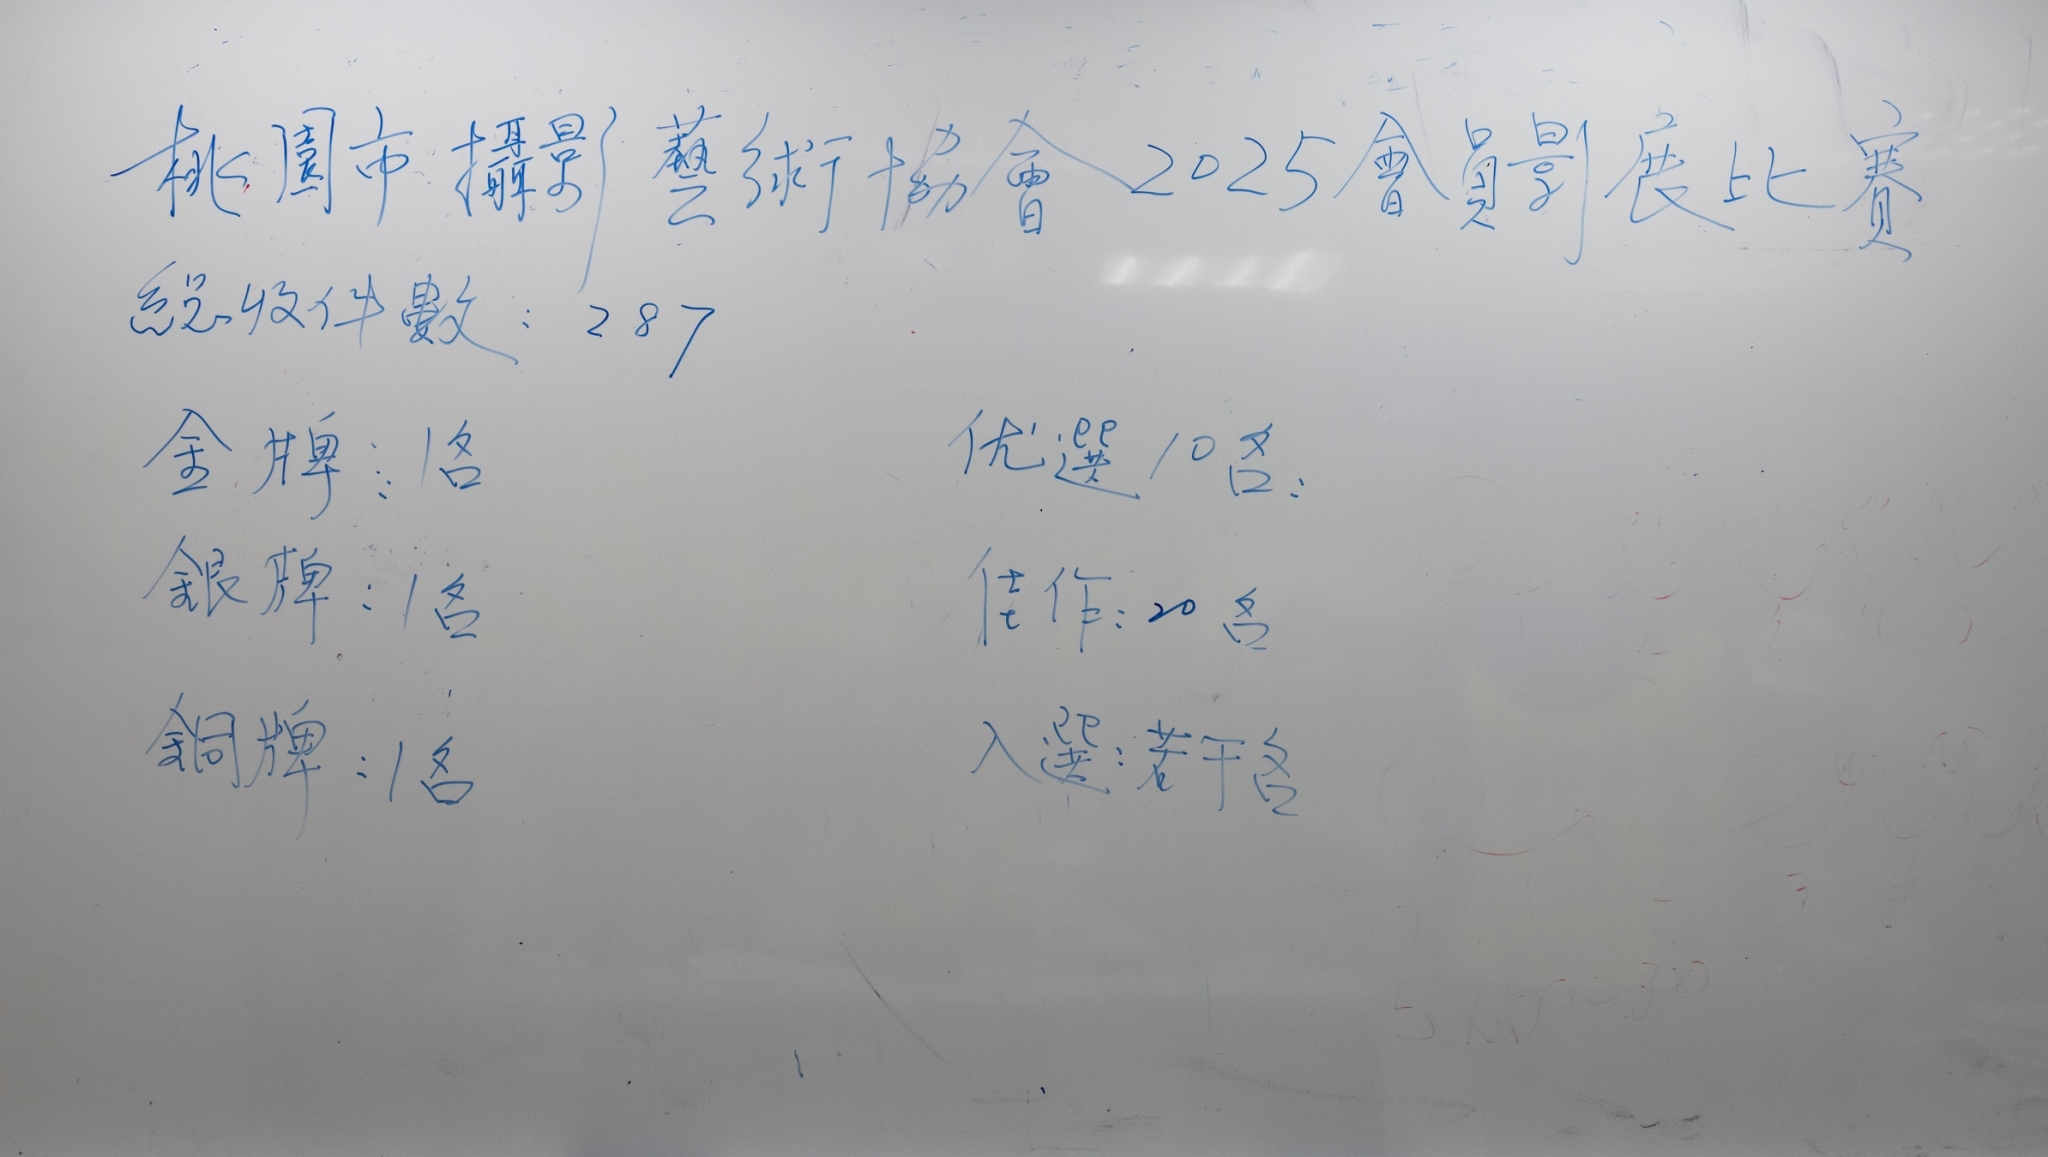 桃園市攝影藝術協會2025會員影展比賽
總收件數：287
金牌：1名
銀牌：1名
銅牌：1名
优選10名：
佳作：20名
入選：若干名